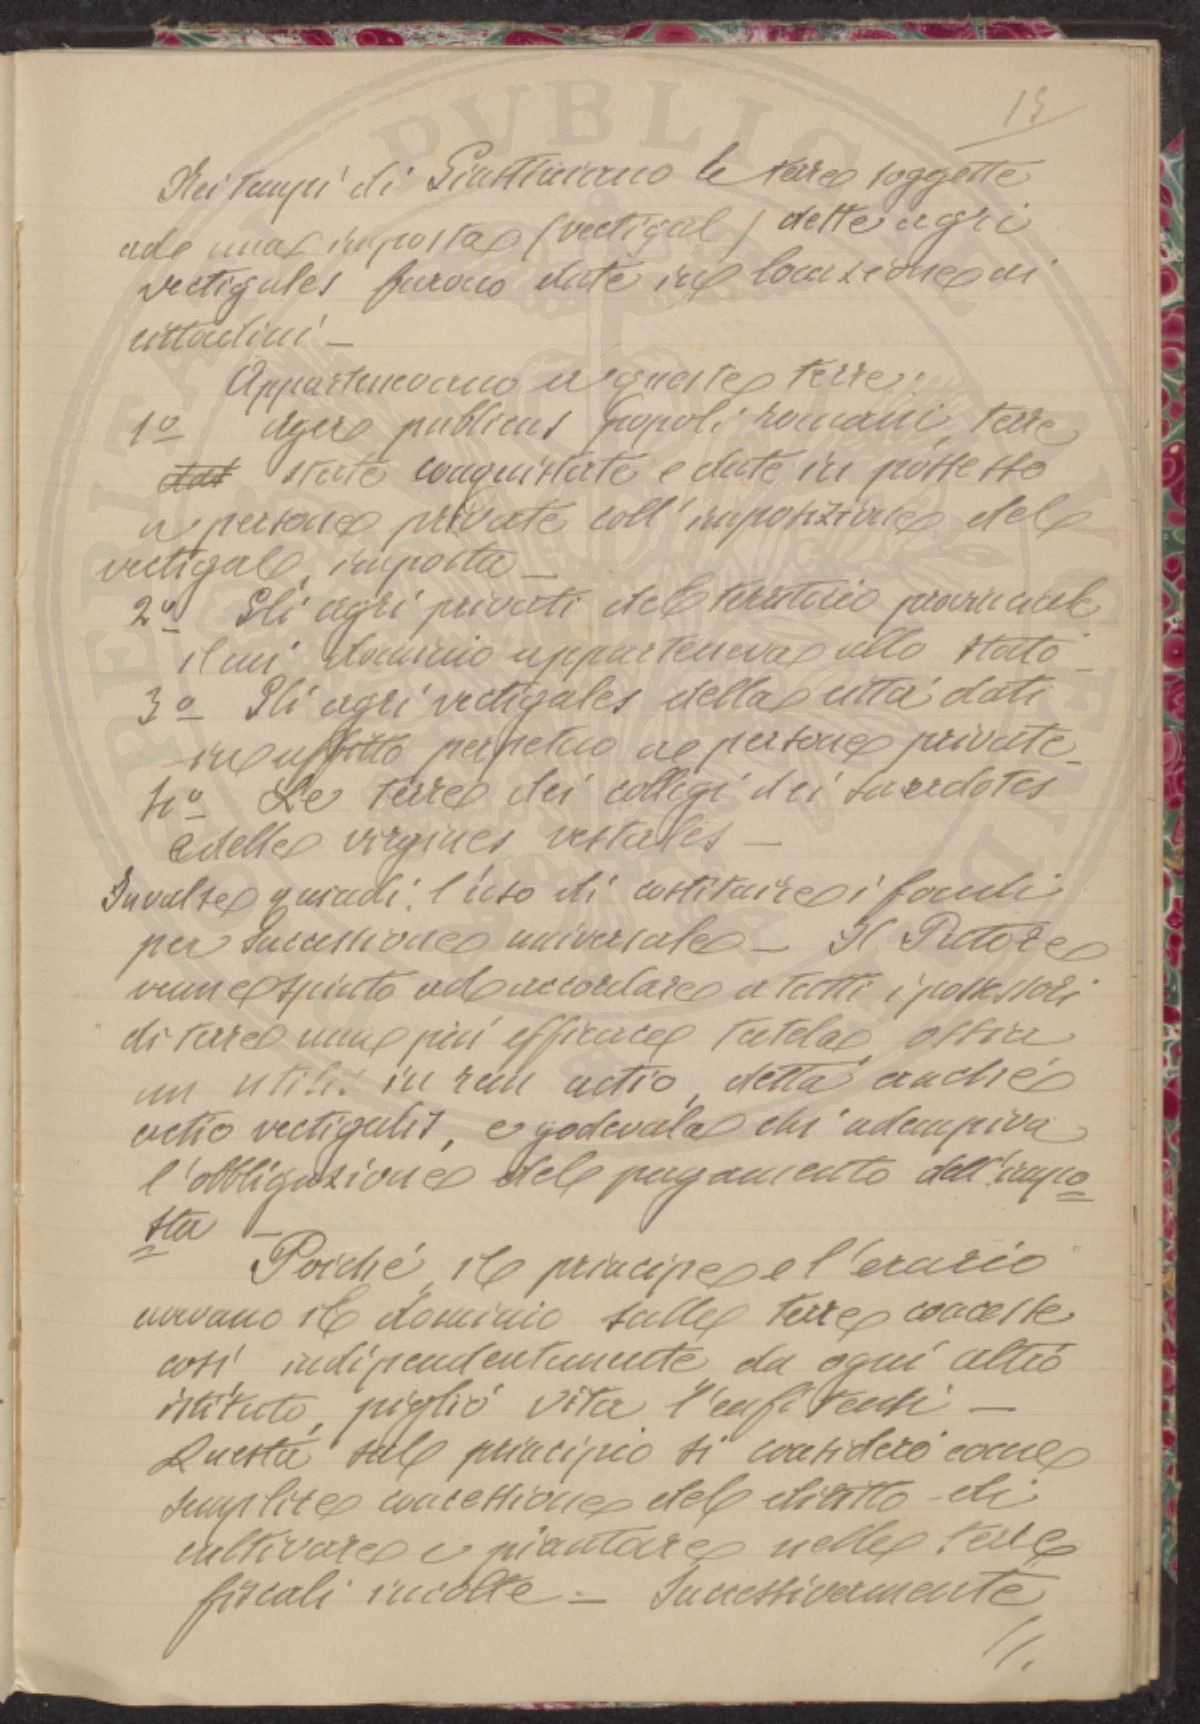 15
Nei tempi di Giustiniano le terre soggette
ad una imposta (vectigal) dette agri
vectigales furono date in locazione ai
cittadini —
Appartenevano a queste terre:
1º ager publicus populi romani, terre
dat state conquistate e date in possesso
a persone private coll'imposizione del
vectigal, imposta —
2º Gli agri privati del territorio provinciale
il cui dominio apparteneva allo stato —
3º Gli agri vectigales della città dati
in affitto perpetuo a persone private —
4º Le terre dei collegi dei sacerdotes
e delle virgines vestales —
Invalse quindi l'uso di costituire i fondi
per successione universale — Il Pretore
venne spinto ad accordare a tutti i possessori
di terre una più efficace tutela, ossia
un utilis in rem actio, detta anche
actio vectigalis, e godevala chi adempiva
l'obbligazione del pagamento dell'impo=
sta —
Poiché il principe e l'erario
avevano il dominio sulle terre concesse
così indipendentemente da ogni altro
istituto, pigliò vita l'enfiteusi —
Questa sul principio si considerò come
semplice concessione del diritto di
coltivare e piantare nelle terre
fiscali incolte — Successivamente
//.